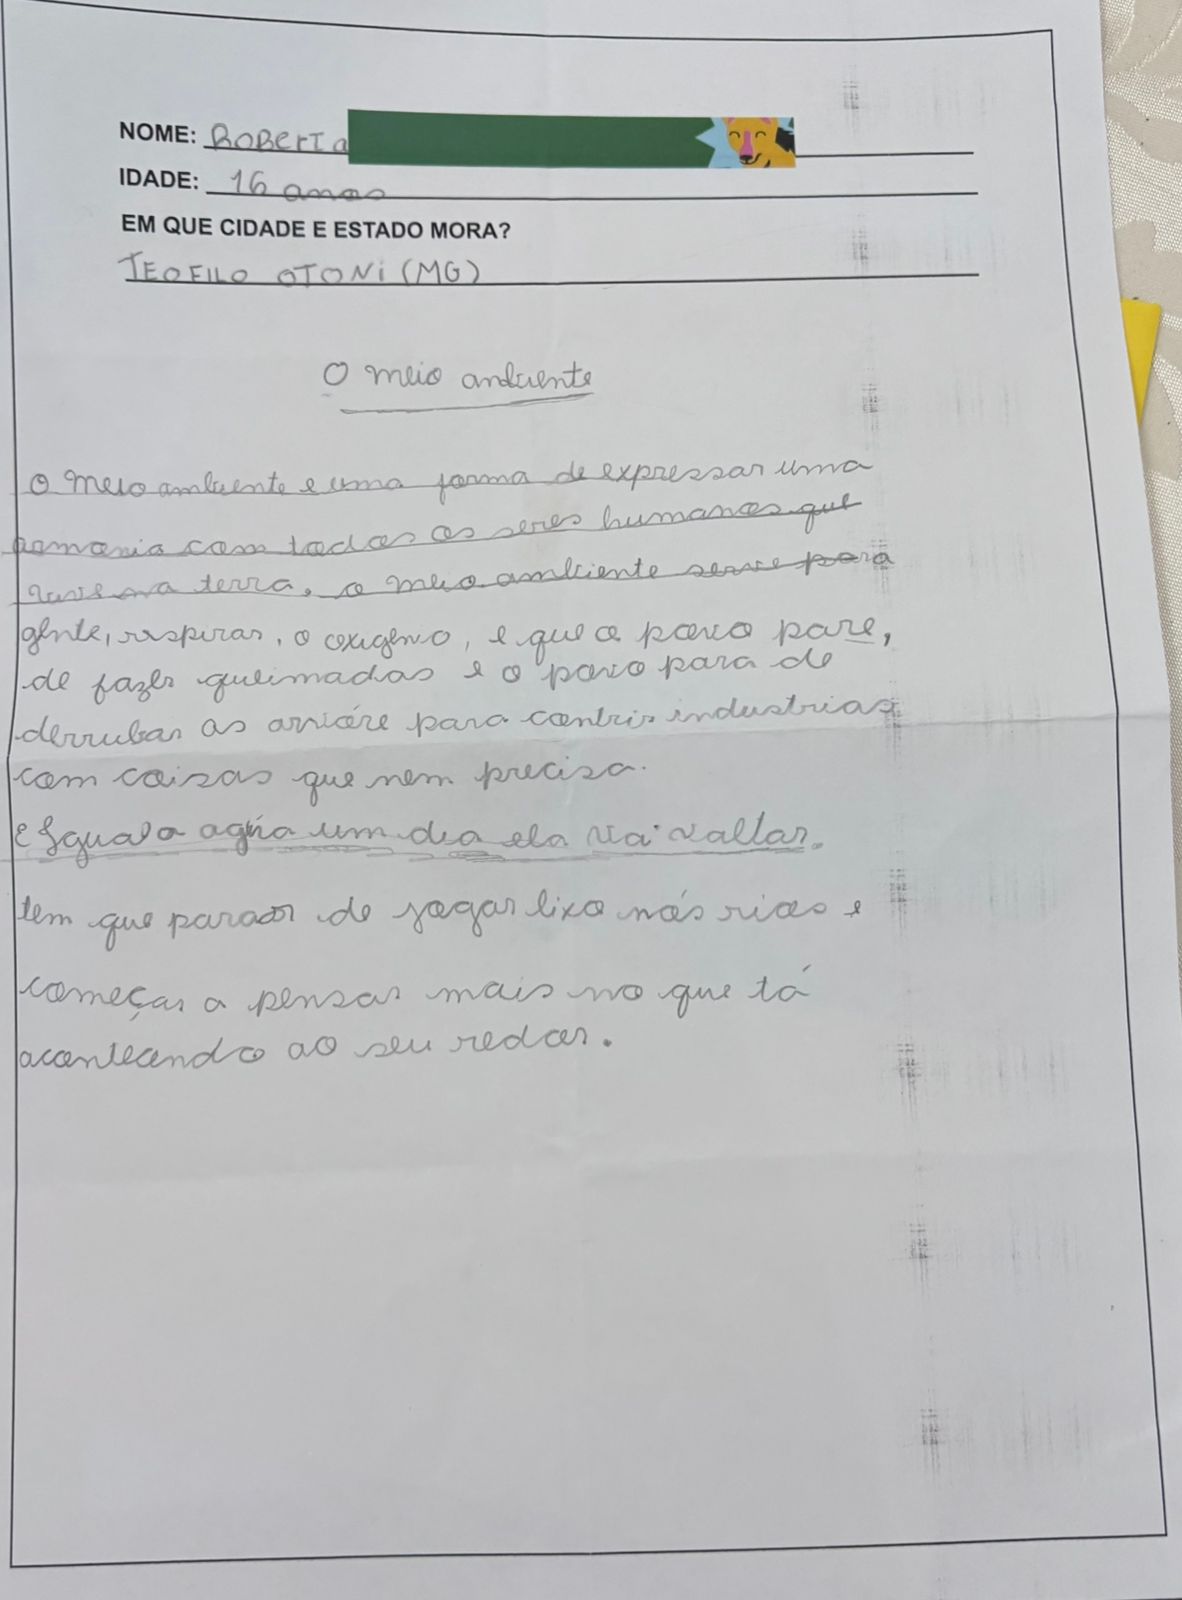 NOME: ROBERTA
IDADE: 16 anos
EM QUE CIDADE E ESTADO MORA?
TEOFILO OTONI (MG)
O meio ambiente
O meio ambiente e uma forma de expressar uma
com todos os seres humanos que
vive na terra, o meio ambiente serve para
gente, respirar, o oxigênio, e que o povo pare,
de fazer queimadas e o povo para de
derrubar as para industrias
com coisas que nem precisa.
E Igual a agúa um dia ela vai valtar.
tem que parar de jogar lixo nós rios e
começar a pensar mais no que tá
aconteando ao seu redor.